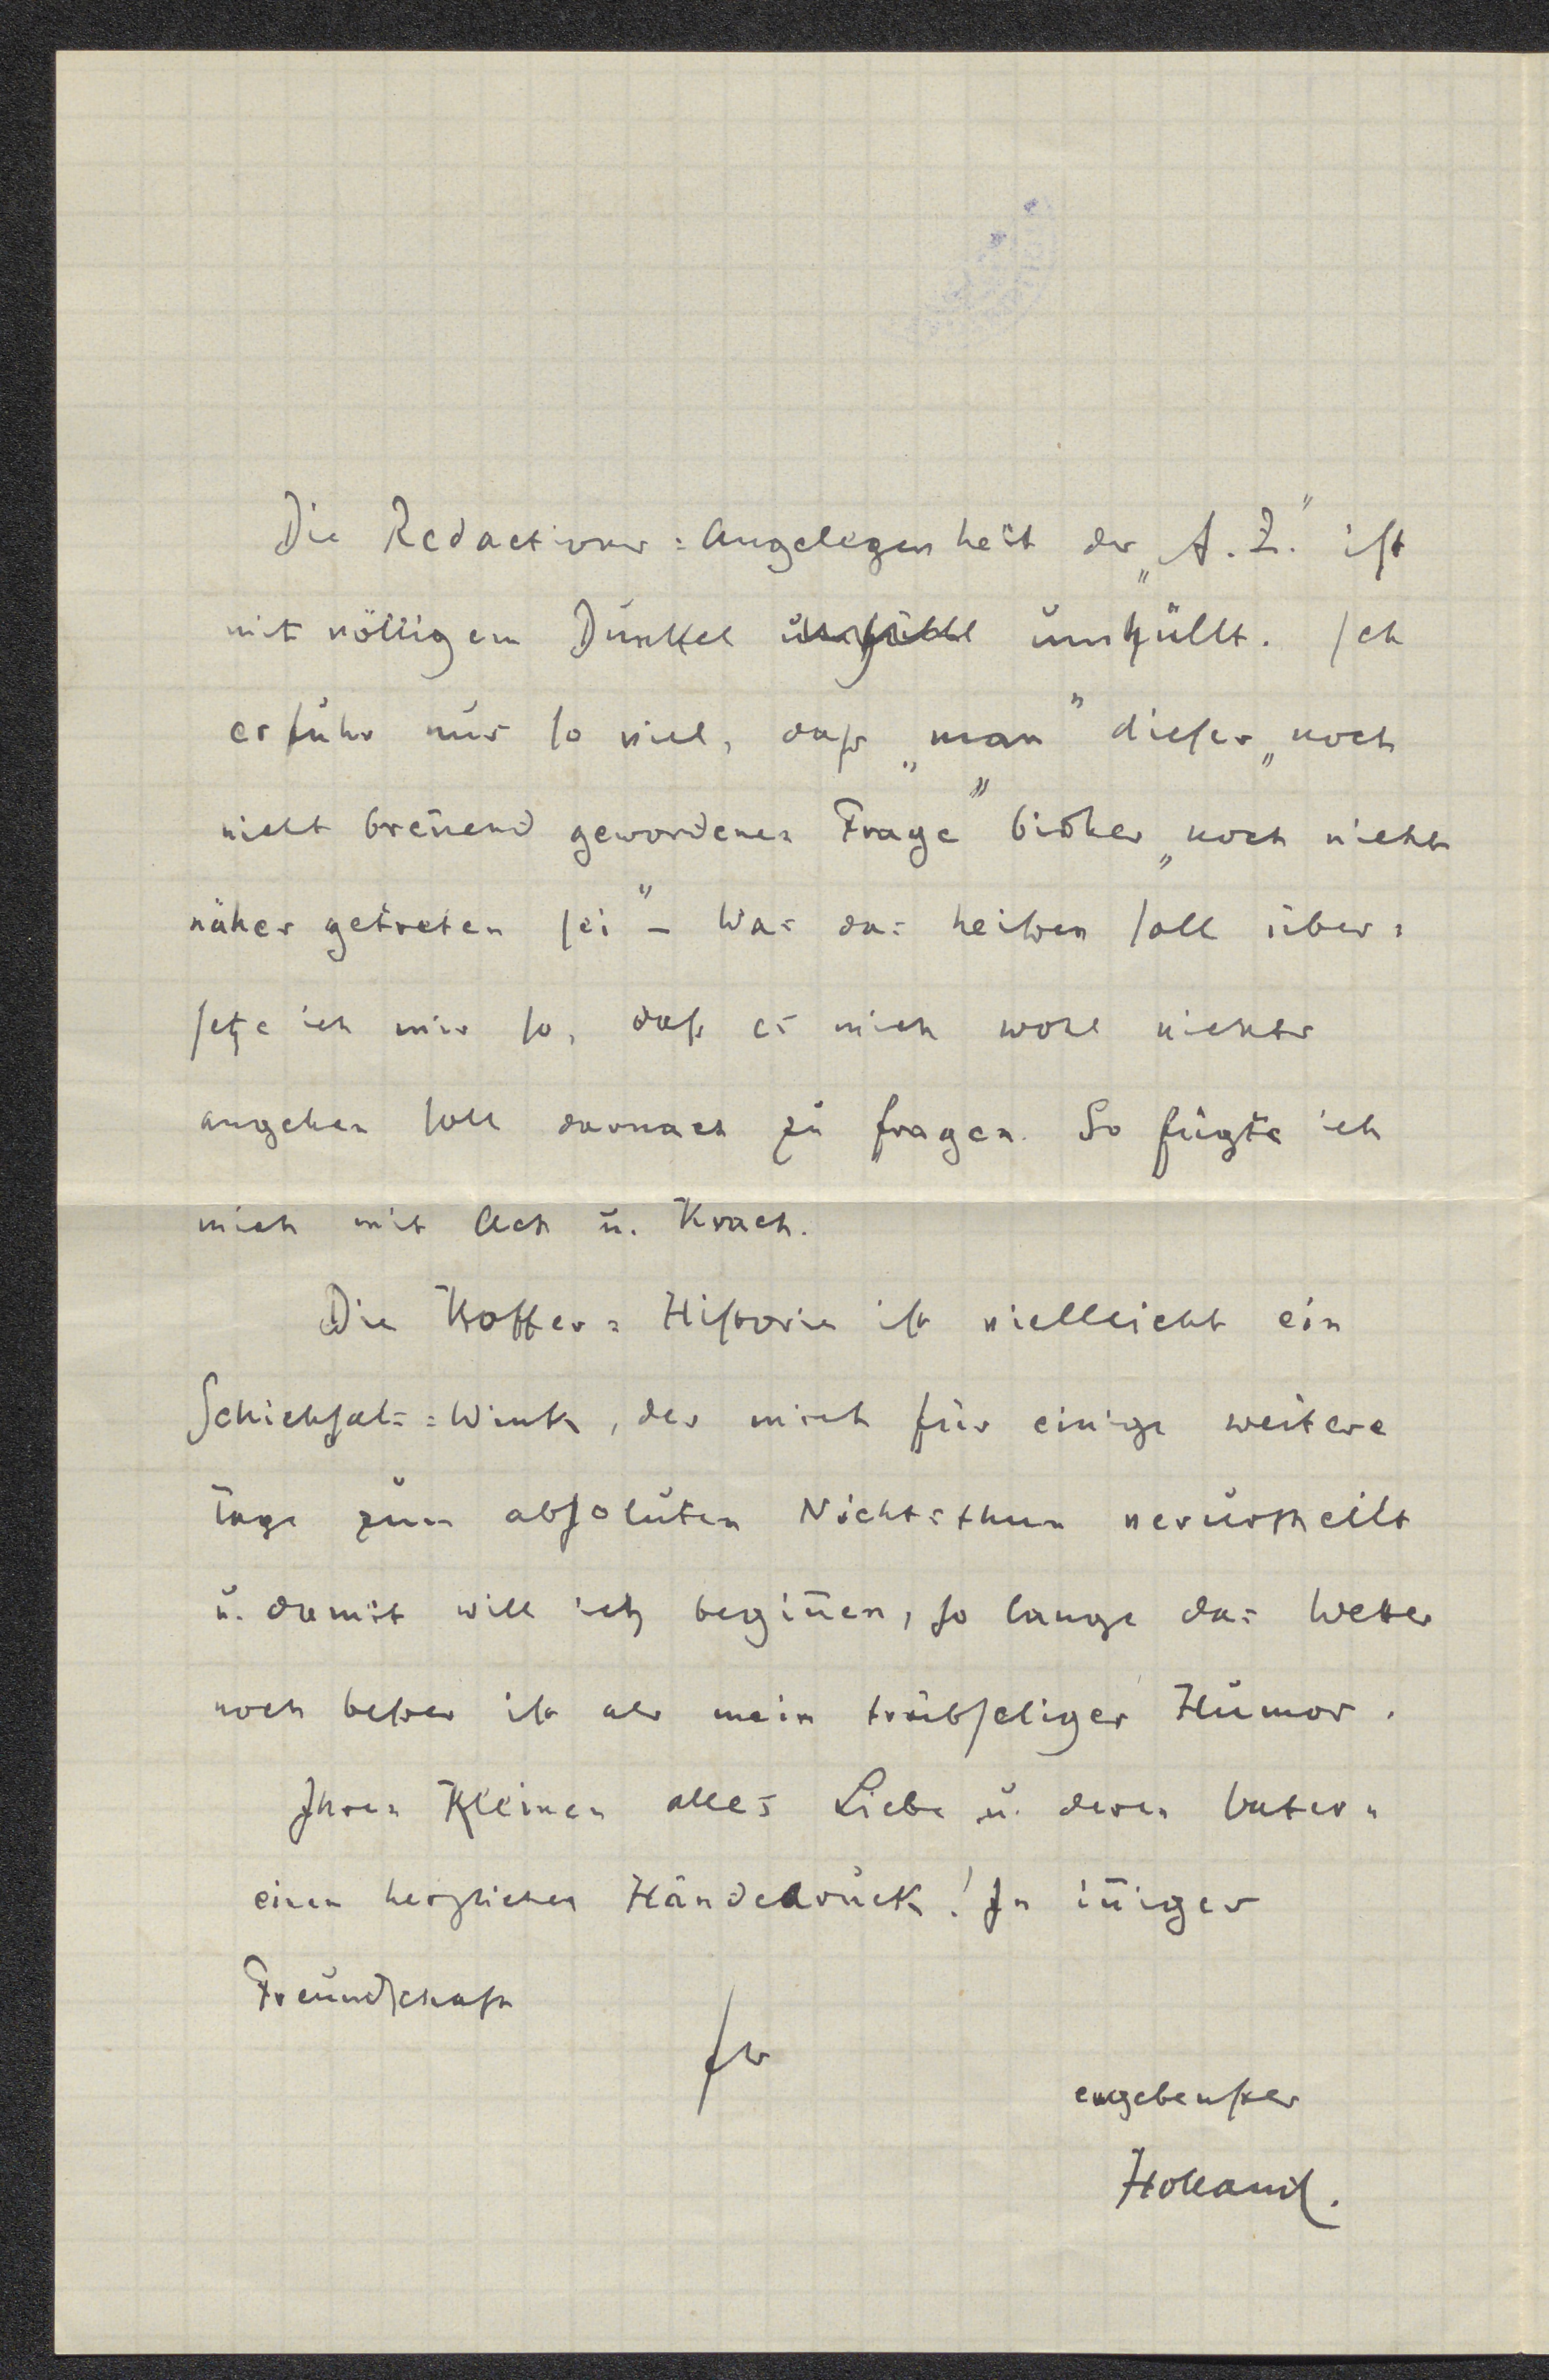 Die Redactions=Angelegenheit der „A. Z.“ ist
mit völligem Dunkel umhüllt. Ich
erfuhr nur so viel, daß „man“ dieser „noch
nicht breñend gewordenen Frage“ bisher „noch nicht
näher getreten sei“ – Was das heißen soll über=
setze ich mir so, daß es mich wohl nichts
angehen soll darnach zu fragen. So fügte ich
mich mit Ach u. Krach.
Die Koffer=Historie ist vielleicht ein
Schicksals=Wink, der mich für einige weitere
Tage zum absoluten Nichtsthun verurtheilt
u. damit will ich begiñen, so lange das Wetter
noch besser ist als mein trübseliger Humor.
Ihren Kleinen alles Liebe u. deren Vatern
einen herzlichen Händedruck! In iñiger
Freundschaft
Ihr
ergebenster
Holland.